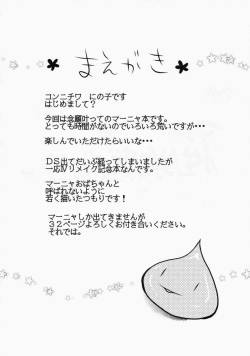 まえがき
コンニチワ　にの子です
はじめまして？
今回は念願叶ってのマーニャ本です。
とっても時間がないのでいろいろ荒いですが・・・
楽しんでいただけたらいいな・・・
ＤＳ出てだいぶ経ってしまいましたが
一応Ⅳリメイク記念本なんです。
マーニャおばちゃんと
呼ばれないように
若く描いたつもりです！
マーニャしか出てきませんが
３２ページよろしくお付き合いください。
それでは。